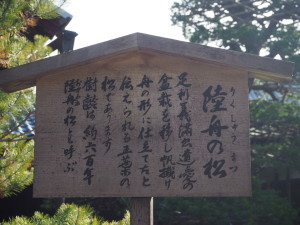 陸舟の松
りくしゅうのまつ
足利義満公遺愛の
盆栽を移し帆掛け
舟の形に仕立てたと
伝えられる五葉の
松であります
樹齢は約六百年
陸舟の松と呼ぶ